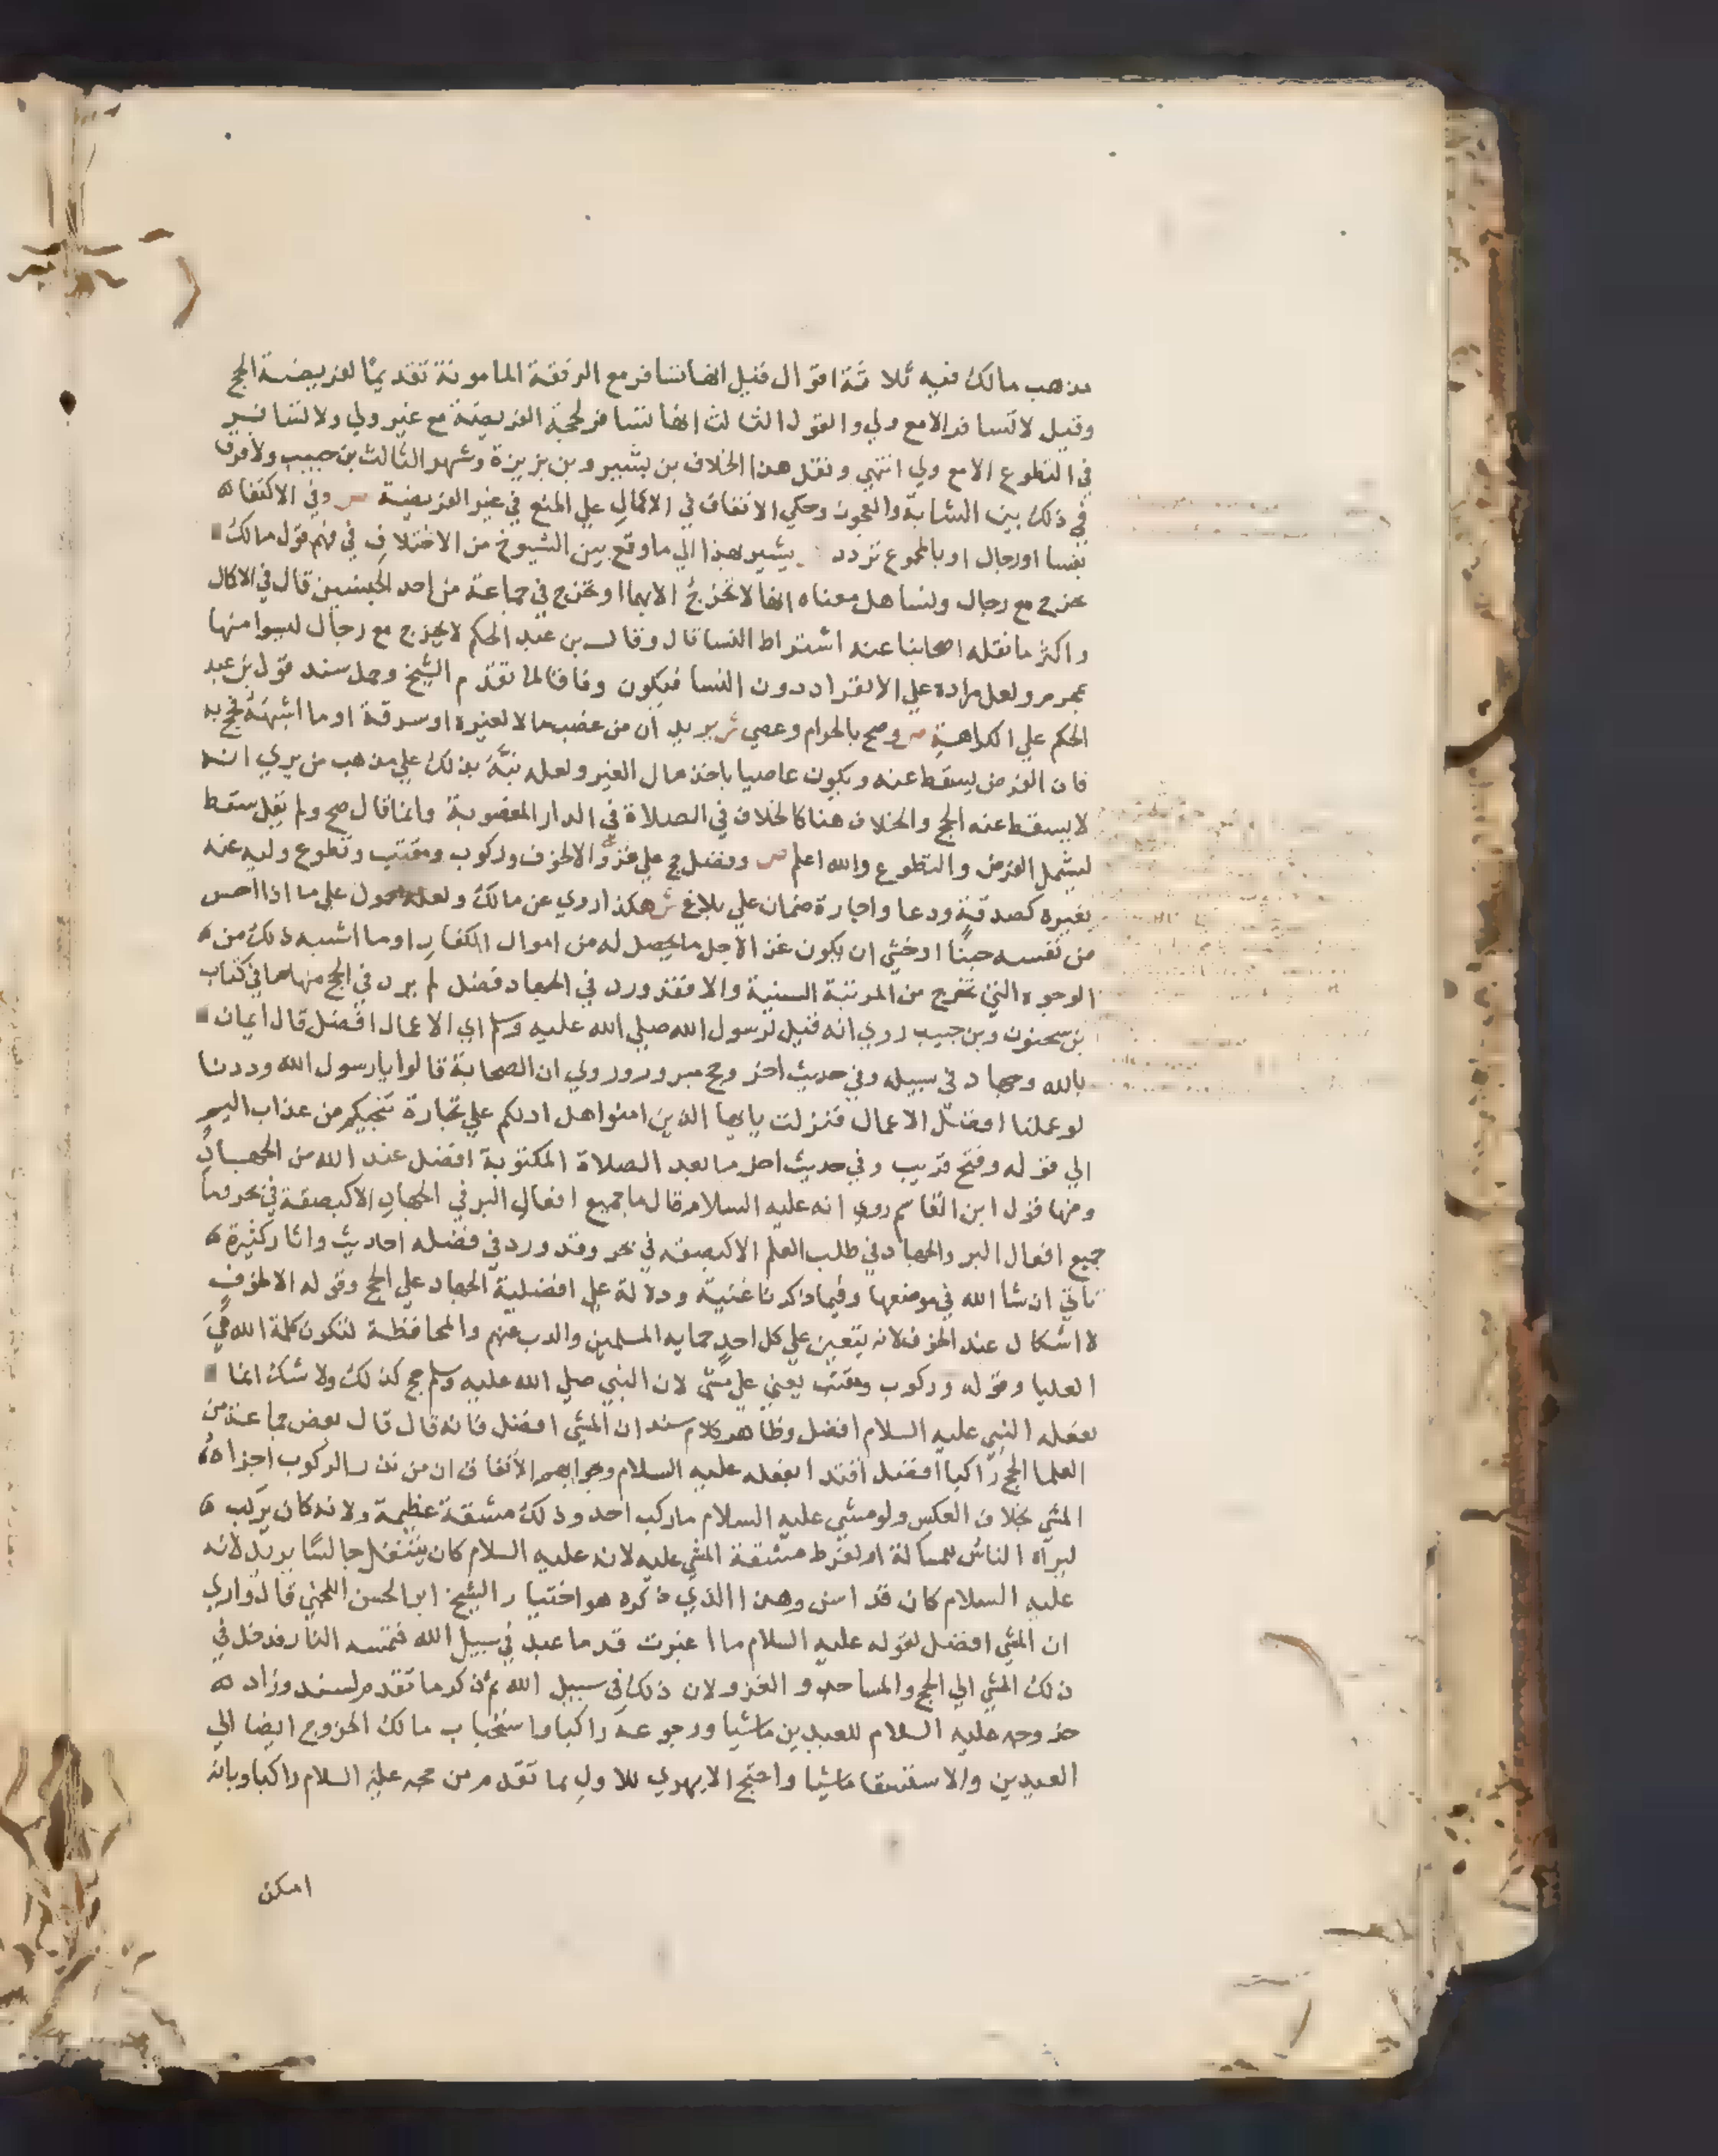 مذهب مالك فيه ثلاثة اقوال فقيل انها تسافر مع الرفقة المامونة تقديمًا لفريضة الحج
وقيل لا تسافر الا مع ولي والقول الثالث انها تسافر لحجة الفريضة مع غير ولي ولا تسافر
في التطوع الا مع ولي انتهي ونقل هذا الخلاف بن بشير وبن بزيزة وشهر الثالث بن حبيب ولا فرق
في ذلك بين الشابة والعجوز وحكي الاتفاق في الاكمال علي المنع في غير الفريضة ص وفي الاكتفا
بنسا اورجال او بالمجموع تردد يشير بهذا الي ما وقع بين الشيوخ من الاختلاف في فهم قول مالك
تخرج مع رجال ونسا هل معناه انها لا تخرج الا بهما او تخرج في جماعة من احد الجنسين قال في الاكمال
واكثر ما نقله اصحابنا عنه اشتراط النسا قال وقال بن عبد الحكم لا تخرج مع رجال ليسوا منها
بمحرم ولعل مراده علي الانفراد دون النسا فيكون وفاقا لما تقدم الشيخ وحمل سند قول بن عبد
الحكم علي الكراهة ص وصح بالحرام وعصي ش يريد ان من غصب مالا لغيره او سرقة او ما اشبهه فحج به
فان الفرض يسقط عنه ويكون عاصيا باخذ مال الغير ولعله نبَّه بذلك علي مذهب من يري انه
لا يسقط عنه الحج والخلاف هنا كالخلاف في الصلاة في الدار المغصوبة وانما قال صح ولم يقل سقط
ليشمل الفرض والتطوع والله اعلم ص وفضل حج علي غزو الا لخوف وركوب ومقتب وتطوع وليه عنه
بغيره كصدقة ودعا واجارة ضمان علي بلاغ ش هكذا روي عن مالك ولعله محمول علي ما اذا احس
من نفسه جبنًا او خشي ان يكون غز الاجل ما يحصل له من اموال الكفار او ما اشبه ذلك من
الوجوه التي تخرج من المرتبة السنية والا فقد ورد في الجهاد فضل لم يرد في الحج منها ما في كتاب
بن سحنون وبن حبيب روي انه قيل لرسول الله صلي الله عليه وسلم اي الاعمال افضل قال ايمان
بالله وجهاد في سبيله وفي حديث اخر وحج مبرور وروي ان الصحابة قالوا يا رسول الله وددنا
لو عملنا افضل الاعمال فنزلت يا يها الذين امنوا هل ادلكم علي تجارة تنجيكم من عذاب اليم
الي قوله وفتح قريب وفي حديث اخر ما بعد الصلاة المكتوبة افضل عند الله من الجهاد
ومنها قول ابن القاسم روي انه عليه السلام قال ما جميع افعال البر في الجهاد الا كبصقة في بحر وما
جميع افعال البر والجهاد في طلب العلم الا كبصقه في بحر وقد ورد في فضله احاديث واثار كثيرة
تاتي ان شا الله في موضعها وفيما ذكرنا غنية ودلالة علي افضلية الجهاد علي الحج وقوله الا لخوف
لا اشكال عند الخوف لانه يتعين علي كل احد حمايه المسلمين والذب عنهم والمحافظة لتكون كلمة الله هيَ
العليا وقوله وركوب ومقتب يعني علي مشي لان النبي صلي الله عليه وسلم حج كذلك ولا شك انما
يفعله النبي عليه السلام افضل وظاهر كلام سند ان المشي افضل فانه قال قال بعض جماعة من
العلما الحج راكبا افضل اقتدا بفعله عليه السلام وجوابهم الاتفاق ان من نذر الركوب اجزاه
المشي بخلاف العكس ولو مشي عليه السلام ما ركب احد وذلك مشقة عظيمة ولانه كان يركب
ليراه الناس للمسالة او لفرط مشقة المشي عليه لانه عليه السلام كان يتنفل جالسًا يريد لانه
عليه السلام كان قد اسن وهذا الذي ذكره هو اختيار الشيخ ابو الحسن اللخمي قال واري
ان المشي افضل لقوله عليه السلام ما اغبرت قدما عبد في سبيل الله فتمسه النار فدخل في
ذلك المشي الي الحج والمساجد و الغزو لان ذلك في سبيل الله ثم ذكر ما تقدم لسند وزاد
خروجه عليه السلام للعيدين ماشيا ورجوعه راكبا واستحباب مالك الخروج ايضا الي
العيدين والاستسقا ماشيا واحتج الابهري للاول بما تقدم من حجه عليه السلام راكبا وبانه
امكن